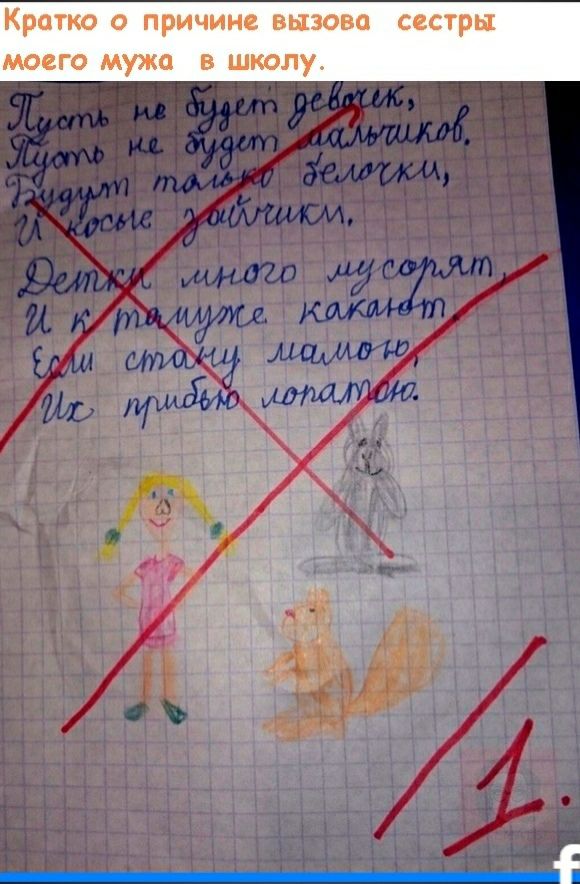 Кратко о причине вызова сестры
моего мужа в школу.
Пусть не будет девочек,
Пусть не будет мальчиков.
Будут только белочки,
И косые зайчики.
Детки много мусорят,
И к томуже какают.
Если стану мамою,
Их прибью лопатою.
1.
f